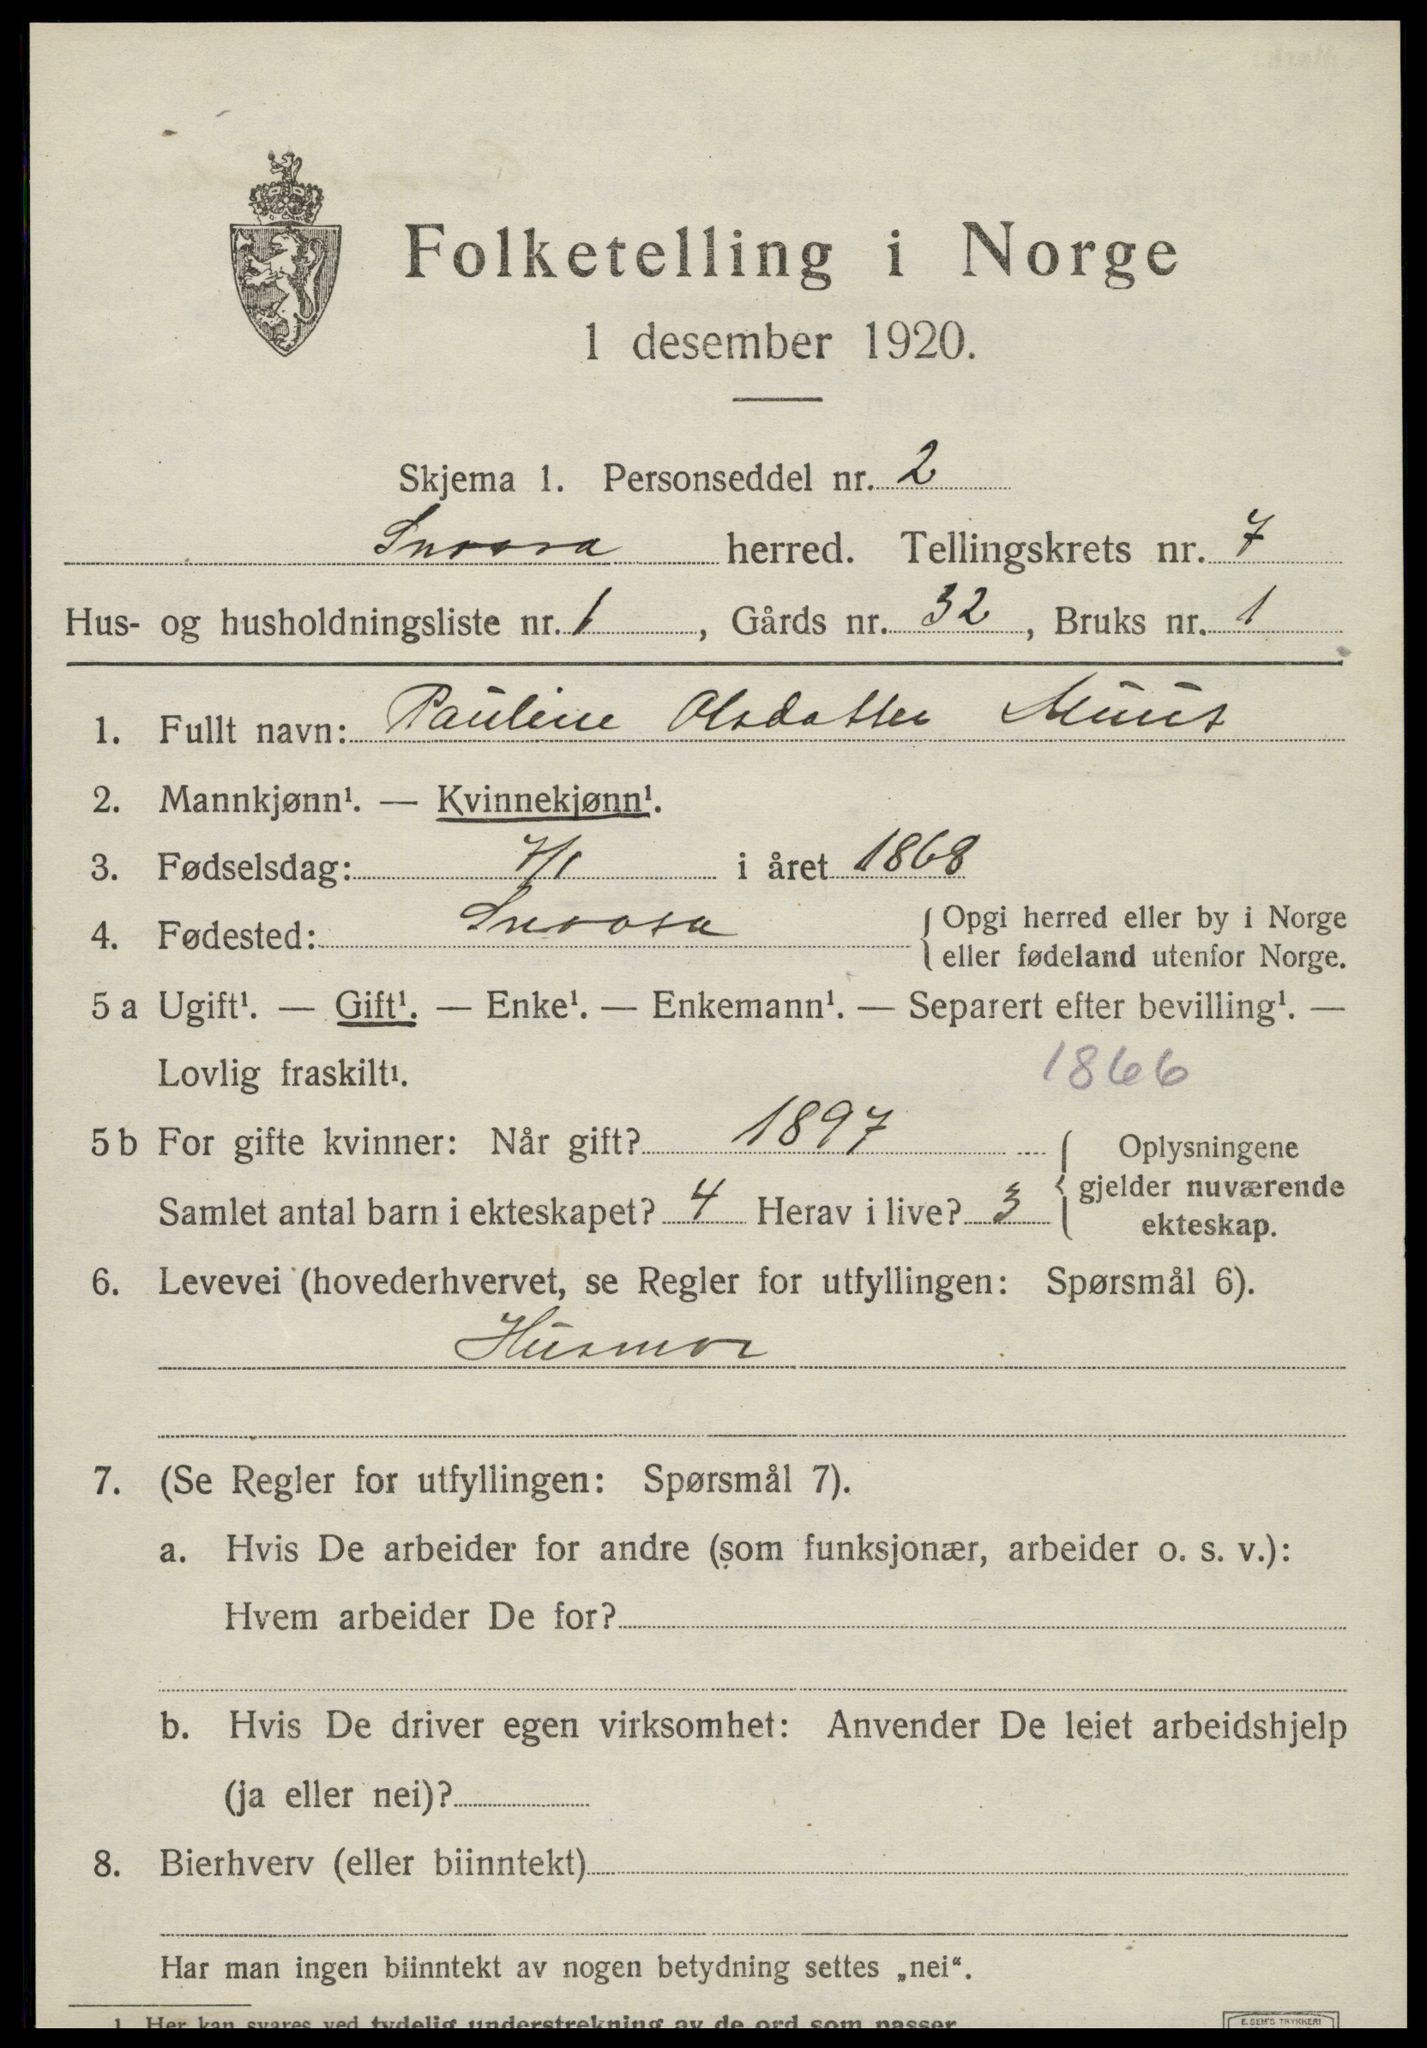 Folketelling i Norge
1 desember 1920.
Skjema 1. Personseddel nr. 2
Snaasa herred. Tellingskrets nr. 7
Hus- og husholdningsliste nr. 1, Gårds nr. 32, Bruks nr. 1
1. Fullt navn: Pauline Olsdatter Muus
2. Mannkjønn¹. — Kvinnekjønn¹.
3. Fødselsdag: 7/1 i året 1868
4. Fødested: Snaasa { Opgi herred eller by i Norge
eller fødeland utenfor Norge.
5 a Ugift¹. — Gift¹. — Enke¹. — Enkemann¹. — Separert efter bevilling¹. —
Lovlig fraskilt¹.
1866
5 b For gifte kvinner: Når gift? 1897
Samlet antal barn i ekteskapet? 4 Herav i live? 3
{ Oplysningene
gjelder nuværende
ekteskap.
6. Levevei (hovederhvervet, se Regler for utfyllingen: Spørsmål 6).
Husmor
7. (Se Regler for utfyllingen: Spørsmål 7).
a. Hvis De arbeider for andre (som funksjonær, arbeider o. s. v.):
Hvem arbeider De for?
b. Hvis De driver egen virksomhet: Anvender De leiet arbeidshjelp
(ja eller nei)?
8. Bierhverv (eller biinntekt)
Har man ingen biinntekt av nogen betydning settes „nei“.
1 Her kan svares ved tydelig understrekning av de ord som passer
E. SEM'S TRYKKERI